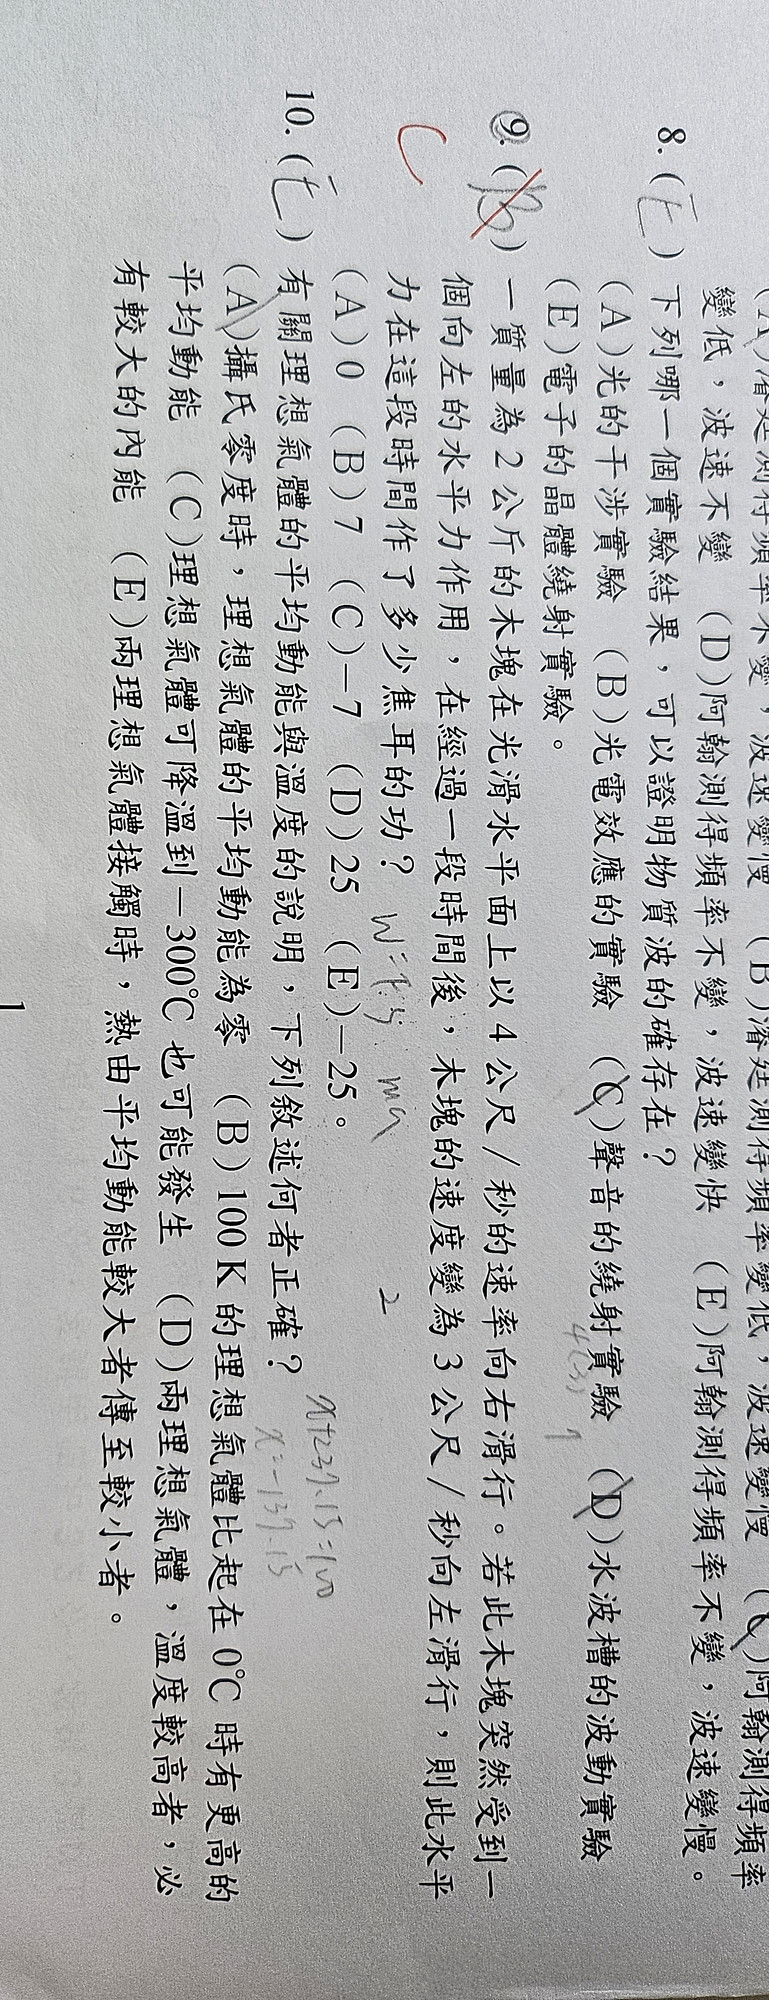 變低，波速不變 (D)阿翰測得頻率不變，波速變快 (E)阿翰測得頻率不變，波速變慢。
8. (E) 下列哪一個實驗結果，可以證明物質波的確存在？
(A)光的干涉實驗 (B)光電效應的實驗 (C)聲音的繞射實驗 (D)水波槽的波動實驗
(E)電子的晶體繞射實驗。
4 (-3)
7
9. (B) 一質量為2公斤的木塊在光滑水平面上以4公尺/秒的速率向右滑行。若此木塊突然受到一
個向左的水平力作用，在經過一段時間後，木塊的速度變為3公尺/秒向左滑行，則此水平
C
力在這段時間作了多少焦耳的功？ W=F.S. ma
2
(A)0 (B)7 (C)-7 (D)25 (E)-25。
x+237.15=100
x=-137.15
10. (E) 有關理想氣體的平均動能與溫度的說明，下列敘述何者正確？
(A)攝氏零度時，理想氣體的平均動能為零 (B)100 K的理想氣體比起在0℃時有更高的
平均動能 (C)理想氣體可降溫到-300℃也可能發生 (D)兩理想氣體，溫度較高者，必
有較大的內能 (E)兩理想氣體接觸時，熱由平均動能較大者傳至較小者。
1